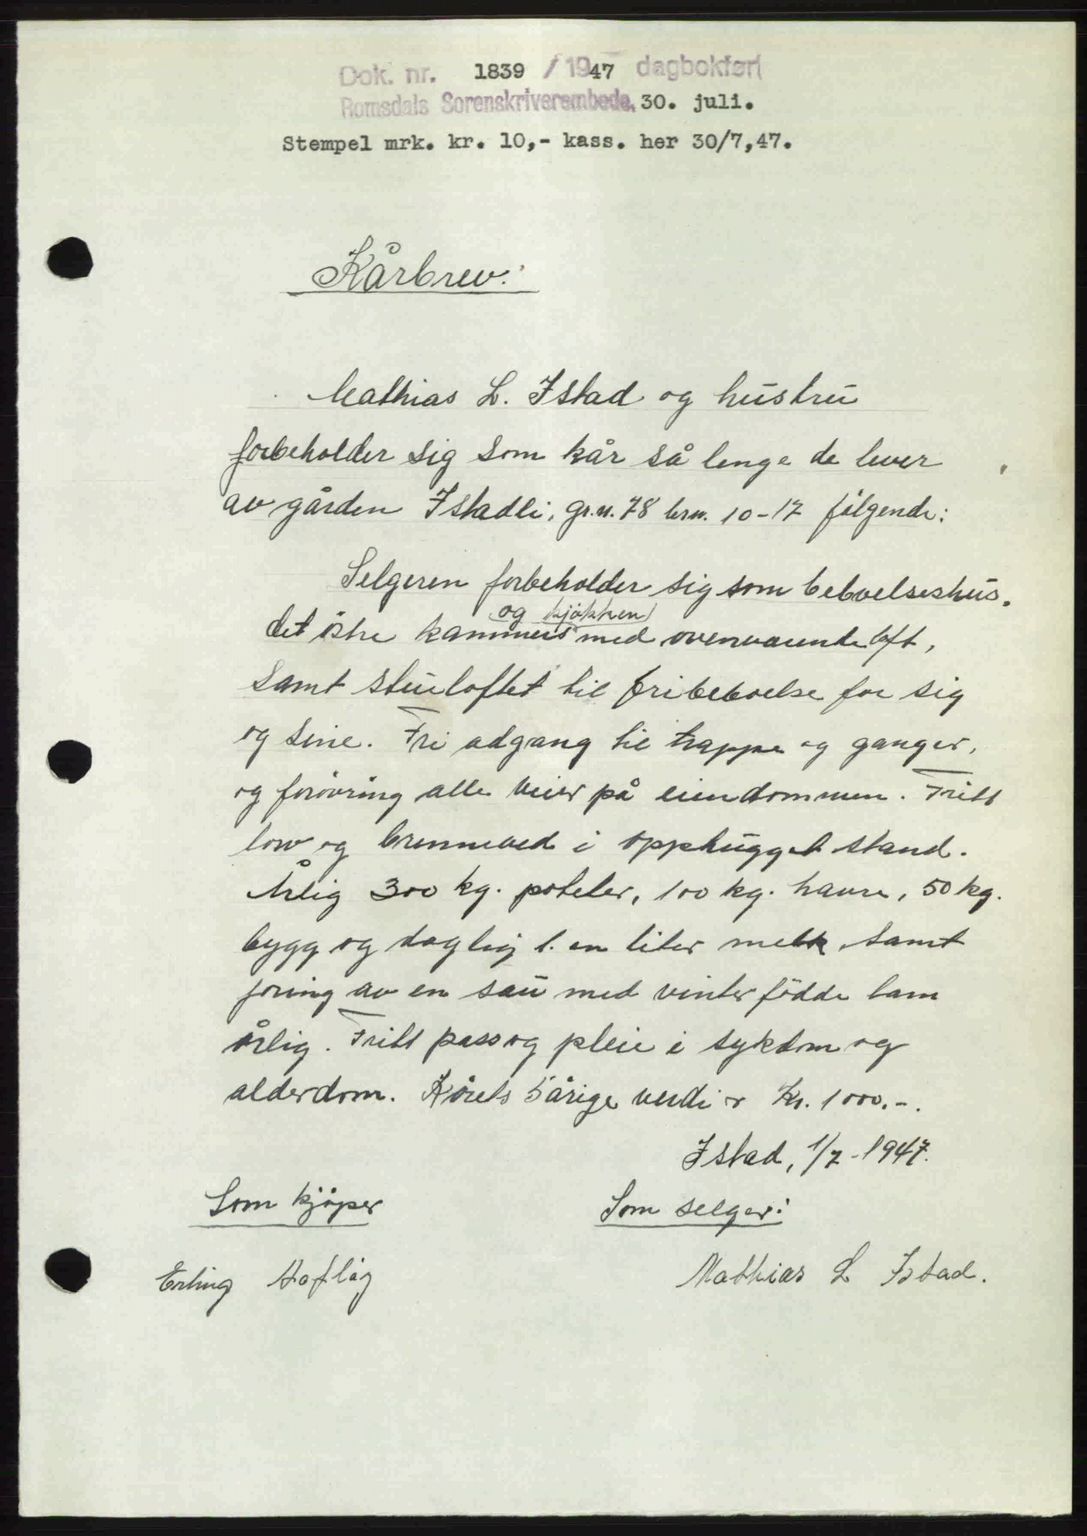 Dok. nr. 1839 / 1947 dagbokført
Romsdals Sorenskriverembede, 30. juli.
Stempel mrk. kr. 10,- kass. her 30/7,47.
Kårbrev:
Mathias L. Istad og hustru
forbeholder sig som kår så lenge de lever
av gården Istadli, gr.n. 78 brn. 10-17 følgende:
Selgeren forbeholder sig som beboelseshus.
og kjøkken
det østre kammers med ovenvarende loft,
samt stueloftet til fri beboelse for sig
og sine. Fri adgang til trappe og ganger,
og forøvring alle veier på eiendommen. Fritt
lov og brenneved i opphugget stand.
Årlig 300 kg. poteter, 100 kg. havre, 50 kg.
bygg og daglig 1. en liter melk samt
foring av en sau med vinterfødde lam
årlig. Fritt pass og pleie i sykdom og
alderdom. Kårets 5 årige verdi er kr. 1000.-.
Istad, 1/7-1947.
Som kjøper
Som selger:
Erling Hofliig
Mathias L Istad.